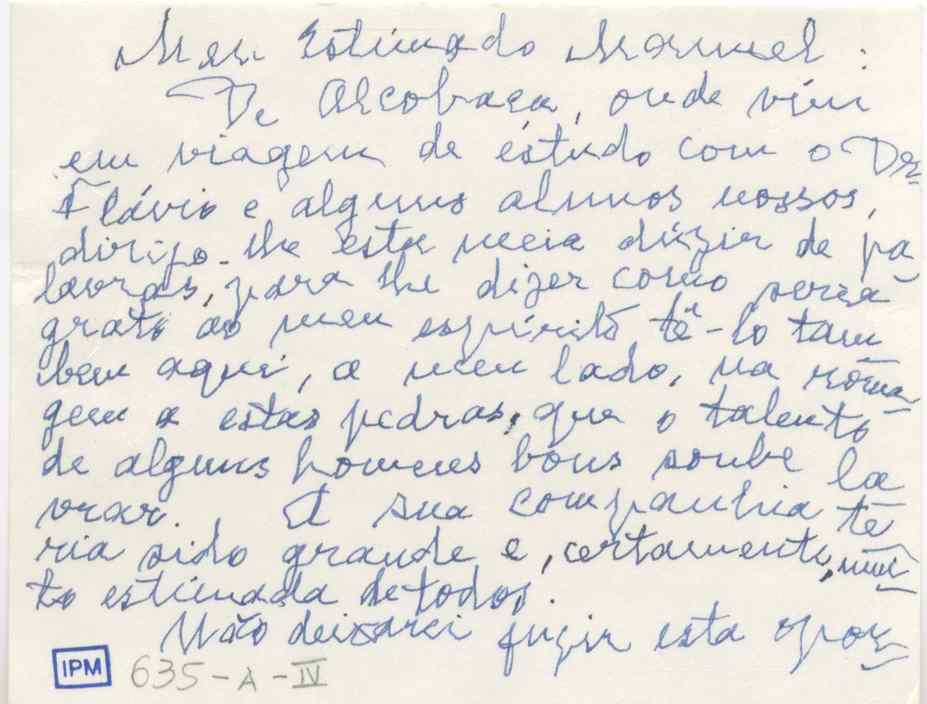 Meu Estimado Manuel:
De Alcobaça, onde vim
em viagem de estudo com o Dr.
Flávio e alguns alunos nossos,
dirijo-lhe esta meia dúzia de pa
lavras, para lhe dizer como seria
grato ao meu espírito tê-lo tam
bem aqui, a meu lado, na roma
gem a estas pedras, que o talento
de alguns homens bons soube la
vrar. A sua companhia te
ria sido grande e, certamente, mui
to estimada de todos.
Não deixarei fugir esta opor
IPM 635-A-IV